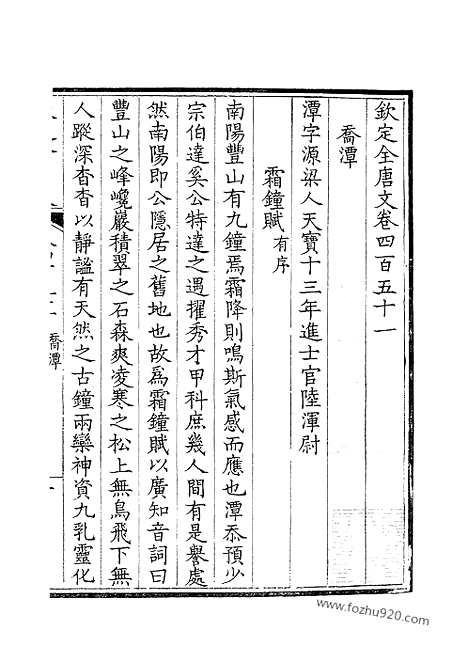 欽定全唐文卷四百五十一
喬潭
潭字源梁人天寶十三年進士官陸渾尉
霜鐘賦有序
南陽豐山有九鐘焉霜降則鳴斯氣感而應也潭忝預少
宗伯達奚公特達之遇擢秀才甲科庶幾人間有是譽處
然南陽即公隱居之舊地也故爲霜鐘賦以廣知音詞曰
豐山之峰巉巖積翠之石森爽凌寒之松上無鳥飛下無
人蹤深杳杳以靜謐有天然之古鐘兩欒神資九乳靈化
喬潭
一
www.fozhu920.com